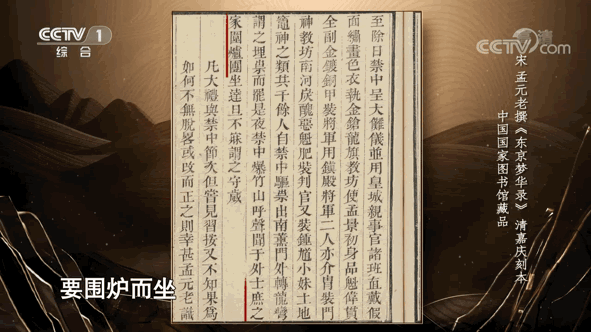 CCTV 1
综合
CCTV.com
至除日禁中呈大儺儀並用皇城親事官諸班直戴假
面繡畫色衣執金鎗龍旗教坊使孟景初身品魁偉貫
全副金鍍銅甲裝將軍用鎮殿將軍二人亦介冑裝門
神教坊南河炭醜惡魁肥裝判官又裝鍾馗小妹土地
竈神之類共千餘人自禁中驅祟出南薰門外轉龍彎
謂之埋祟而罷是夜禁中爆竹山呼聲聞于外士庶之
家圍爐團坐達旦不寐謂之守歲
凡大禮與禁中節次但嘗見習按又不知果爲
如何不無脫畧或改而正之則幸甚孟元老識
宋 孟元老撰《东京梦华录》 清嘉庆刻本
中国国家图书馆藏品
要围炉而坐